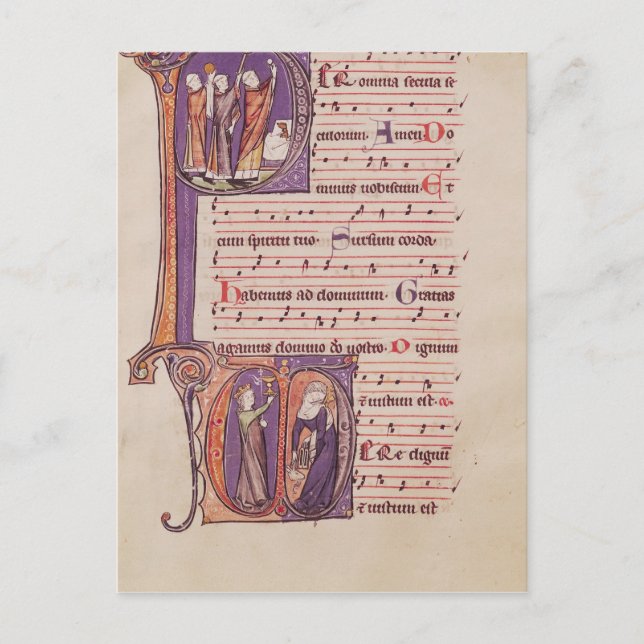 ER omnia secula se
culorum. Amen. Do
minus uobiscum. Et
cum spiritu tuo. Sursum corda
habemus ad dominum. Gratias
agamus domino deo nostro. Dignum
et iustum est.
ERe dignum
et iustum est